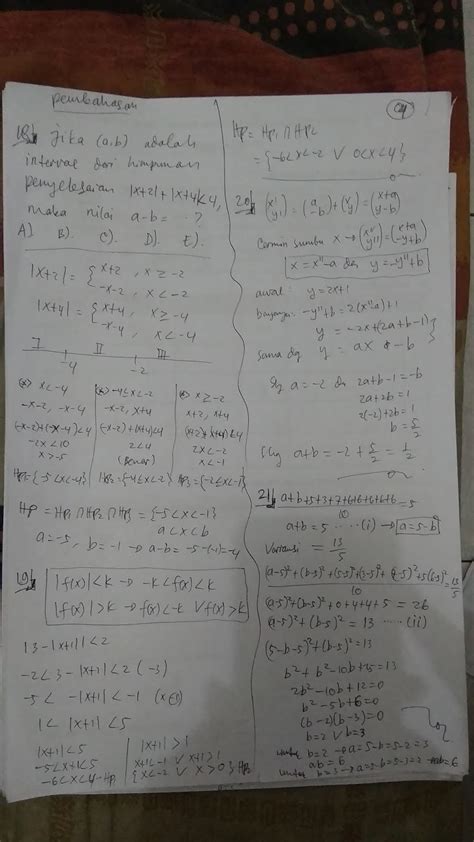 Pembahasan
18) Jika (a,b) adalah
interval dari himpunan
penyelesaian |x+2| + |x+4| < 4,
maka nilai a-b = ..?
A). B). C). D). E).
|x+2| = { x+2 , x ≥ -2
-x-2 , x < -2
|x+4| = { x+4 , x ≥ -4
-x-4 , x < -4
I II III
-4 -2
(*) x < -4
-x-2, -x-4
(-x-2)+(-x-4)<4
-2x < 10
x > -5
Hp1 = {-5<x<-4}
(*) -4≤x<-2
-x-2, x+4
(-x-2)+(x+4)<4
2 < 4
(Benar)
Hp2 = {-4≤x<-2}
(*) x ≥ -2
x+2, x+4
(x+2)+(x+4)<4
2x < -2
x < -1
Hp3 = {-2≤x<-1}
Hp = Hp1 ∩ Hp2 ∩ Hp3 = {-5<x<-1}
a<x<b
a = -5, b = -1 → a-b = -5-(-1) = -4
19)
|f(x)| < k → -k < f(x) < k
|f(x)| > k → f(x) < -k ∨ f(x) > k
|3 - |x+1|| < 2
-2 < 3 - |x+1| < 2 (-3)
-5 < -|x+1| < -1
1 < |x+1| < 5
|x+1| < 5
-5 < x+1 < 5
-6 < x < 4 → Hp1
|x+1| > 1
x+1 < -1 ∨ x+1 > 1
{x < -2 ∨ x > 0} Hp2
04
Hp = Hp1 ∩ Hp2
= {-6<x<-2 ∨ 0<x<4}
20) (x' y') = (a -b) + (x y) = (x+a y-b)
Cermin sumbu x → (x'' y'') = (x+a -y+b)
x = x''-a dan y = -y''+b
awal : y = 2x+1
bayangan : -y''+b = 2(x''-a)+1
y = -2x + (2a+b-1)
sama dg y = ax - b
Sg a = -2 dan 2a+b-1 = -b
2a+2b = 1
2(-2)+2b = 1
b = 5/2
Shg a+b = -2 + 5/2 = 1/2
21) a+b+5+3+7+6+6+6+6+6 / 10 = 5
a+b = 5 .... (i) → a = 5-b
Variansi = 13/5
(a-5)²+(b-5)²+0+4+4+5 = 26
(a-5)²+(b-5)² = 13 .... (ii)
(5-b-5)²+(b-5)² = 13
b² + b² -10b+25 = 13
2b² -10b+12 = 0
b² -5b+6 = 0
(b-2)(b-3) = 0
b = 2 ∨ b = 3
untuk b = 2 → a = 5-b = 5-2 = 3
ab = 6